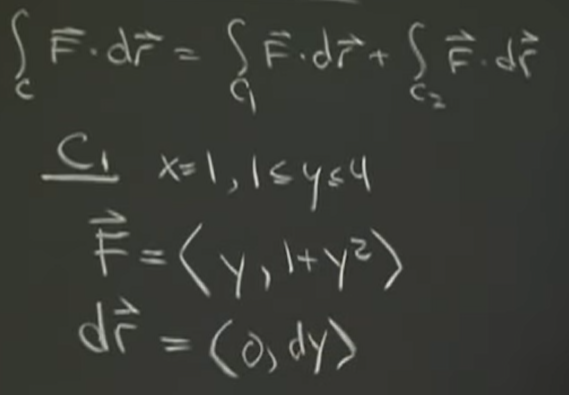 ∫_C F⃗·dr⃗ = ∫_C₁ F⃗·dr⃗ + ∫_C₂ F⃗·dr⃗
C₁ x=1, 1≤y≤4
F⃗ = ⟨y, 1+y²⟩
dr⃗ = ⟨0, dy⟩